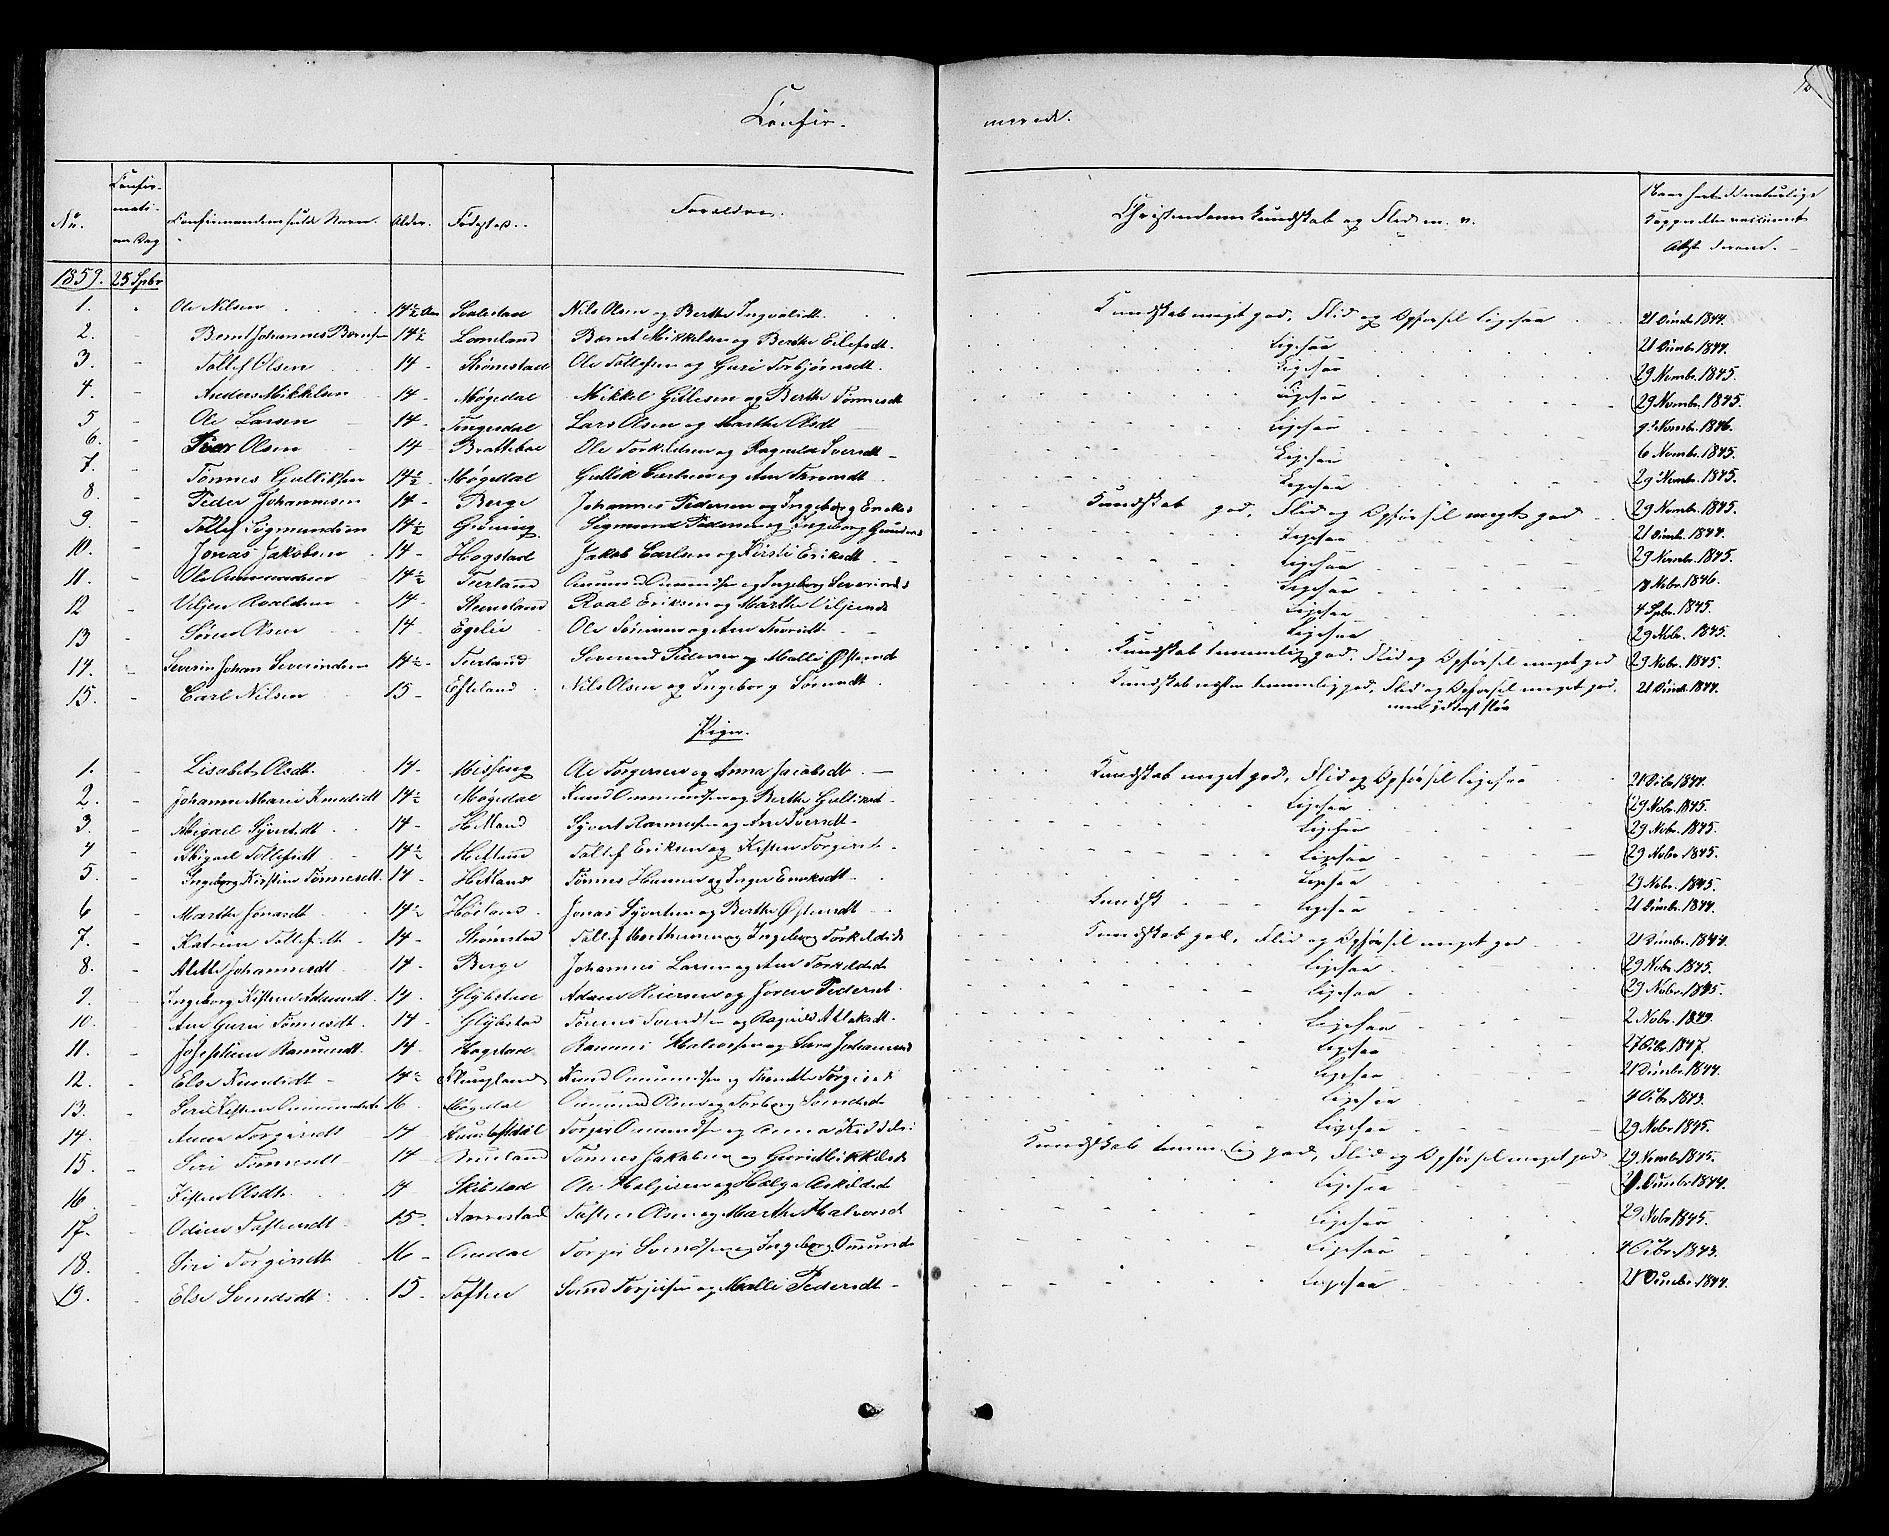 Confir-
merede.
No.
Confir-
mati-
ons Dag
Confirmandens fulde Navn.
Alder.
Fødested.
Forældre.
Christendoms Kundskab og Flid m. v.
Naar havt de naturlige
Kopper eller vaccineret
Attest derom.
1859. 25 Spbr
1. Ole Nilsen 14½ Aar Svalestad Nils Olsen og Berthe Ingvaldt. Kundskab meget god, Flid og Opførsel ligesaa 21 Decbr 1844.
2. Bernt Johannes Berntsen 14½ Lomeland Bernt Mikkelsen og Berthe Eilefsdt. Ligesaa 21 Decbr. 1844.
3. Tollef Olsen 14 Strømstad Ole Tollefsen og Guri Torbjørnsdt. Ligesaa 29 Novembr. 1845.
4. Anders Mikkelsen 14 Møgedal Mikkel Gitlesen og Berthe Tønnesdt Ligesaa 29 Novembr. 1845.
5 Ole Larsen 14 Tengesdal Lars Olsen og Marthe Olsdt Ligesaa Novembr. 1846.
6. Peder Olsen 14 Brattebøe Ole Torkildsen og Ragnild Iversdt Ligesaa 6 Novembr. 1845.
7. Tønnes Gulliksen 14½ Møgedal Gullik Carlsen og Ane Ligesaa 29 Novembr. 1845.
8. Peder Johannesen 14 Berge Johannes Pedersen og Ingeborg Eriks Kundskab god, Flid og Opførsel meget god 29 Novembr. 1845.
9. Tollef Sigmundsen 14½ Grøning Sigmund Pedersen og Ingeborg Gunders Ligesaa 21 Decbr. 1844.
10. Jonas Jakobsen 14 Hogstad Jakob Carlsen og Kirsti Eriksdt. Ligesaa 29 Novembr. 1845.
11. Ole Omundsen 14½ Tierland Omund Omundsen og Ingeborg Severinds Ligesaa 18 Nobr. 1846.
12 Viljen Roaldsen 14 Steensland Roal Eriksen og Marthe Viljends Ligesaa 4 Spbr. 1845.
13 Søren Olsen 14 Egelie Ole Sørensen og Ane Ligesaa 29 Nobr. 1845.
14. Severin Johan Severindsen 14½ Tierland Severind Pedersen og Malli Østensd Kundskab temmelig god, Flid og Opførsel meget god 29 Nobr. 1845.
15. Carl Nilsen 15 Efteland Nils Olsen og Ingeborg Sørensdt Kundskab næsten temmelig god, Flid og Opførsel meget god, 21 Decbr. 1844.
men yderst sløv
Piger.
1. Lisabet Olsdt. 14 Missing Ole Torgersen og Anna Jacobsdt. Kundskab meget god, Flid og Opførsel ligesaa 21 Decbr 1844.
2. Johanne Marie Knudsdt 14½ Møgedal Knud Omundsen og Berthe Gulliksd. Ligesaa 29 Nobr. 1845.
3. Abigael Syvertsdt 14 Hetland Syvert Rasmussen og Ane Iversdt Ligesaa 29 Nobr. 1845.
4 Abigael Tollefsdt 14½ Hetland Tollef Eriksen og Kisten Torgersd Ligesaa 29 Nobr. 1845.
5. Ingeborg Kirstine Tønnesdt. 14 Hetland Tønnes Hansen og Inger Enoksdt Ligesaa 29 Nobr. 1845.
6 Marthe Jonasdt 14½ Høeland Jonas Syvertsen og Berthe Østensdt Kundsk Ligesaa 21 Decbr. 1844.
7. Katrine Tollefsdt 14 Strømstad Tollef Mathissen og Ingeborg Torkildsd Kundskab god, Flid og Opførsel meget god 21 Decbr. 1844.
8. Alette Johannesdt 14 Berge Johannes Larsen og Ane Torkildsd Ligesaa 29 Nobr. 1845.
9. Ingeborg Kistine Adamsdt. 14 Glypstad Adam Reiersen og Joren Pedersd. Ligesaa 29 Nobr. 1845.
10. Ane Guri Tønnesdt. 14 Glypstad Tønnes Svendsen og Ragnild Atlaksdt. Ligesaa 2 Nobr. 1849.
11. Josephine Rasmusdt. 14 Hogstad Rasmus Halvorsen og Sara Johannesd Ligesaa 27 Octbr. 1847.
12. Else Knudsdt 14½ Skungland Knud Omundsen og Torgersd Ligesaa 21 Decbr. 1844.
13. Siri Kistine Omundsdt 16 Møgedal Omund Olsen og Torborg Svendsd Ligesaa 4 Octbr. 1843.
14. Anne Torgersdt 14 Torger Omundsen og Ligesaa 29 Nobr. 1845.
15. Siri Tønnesdt 14 Tønnes Jakobsen og Guri Mikkelsd Kundskab temmelig god, Flid og Opførsel meget god 29 Novembr. 1845.
16 Kisten Olsdt. 14 Skibstad Ole Helgesen og Helga Askildsd Ligesaa 21 Decbr 1844.
17. Odine Tostensdt 15 Aarrestad Tosten Olsen og Marthe Halvorsd Ligesaa 29 Nobr. 1845.
18. Siri Torgersdt 16 Omdal Torger Svendsen og Ingeborg Omunds Ligesaa 4 Octbr. 1843.
19. Else Svendsdt 15 Toften Svend Torjersen og Malli Pedersdt Ligesaa 21 Decbr. 1844.